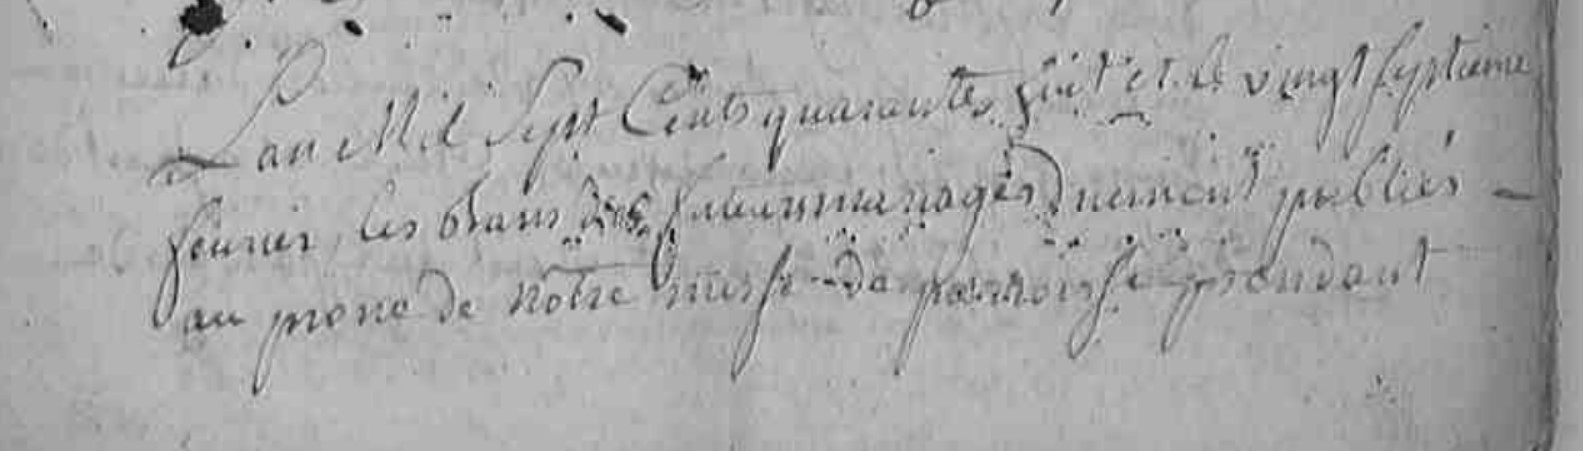 Lan Mil Sept Cents quarante huit et le vingt septieme
fevrier les bans des futurs mariages duement publies
au prone de notre messe de parroisse pendant